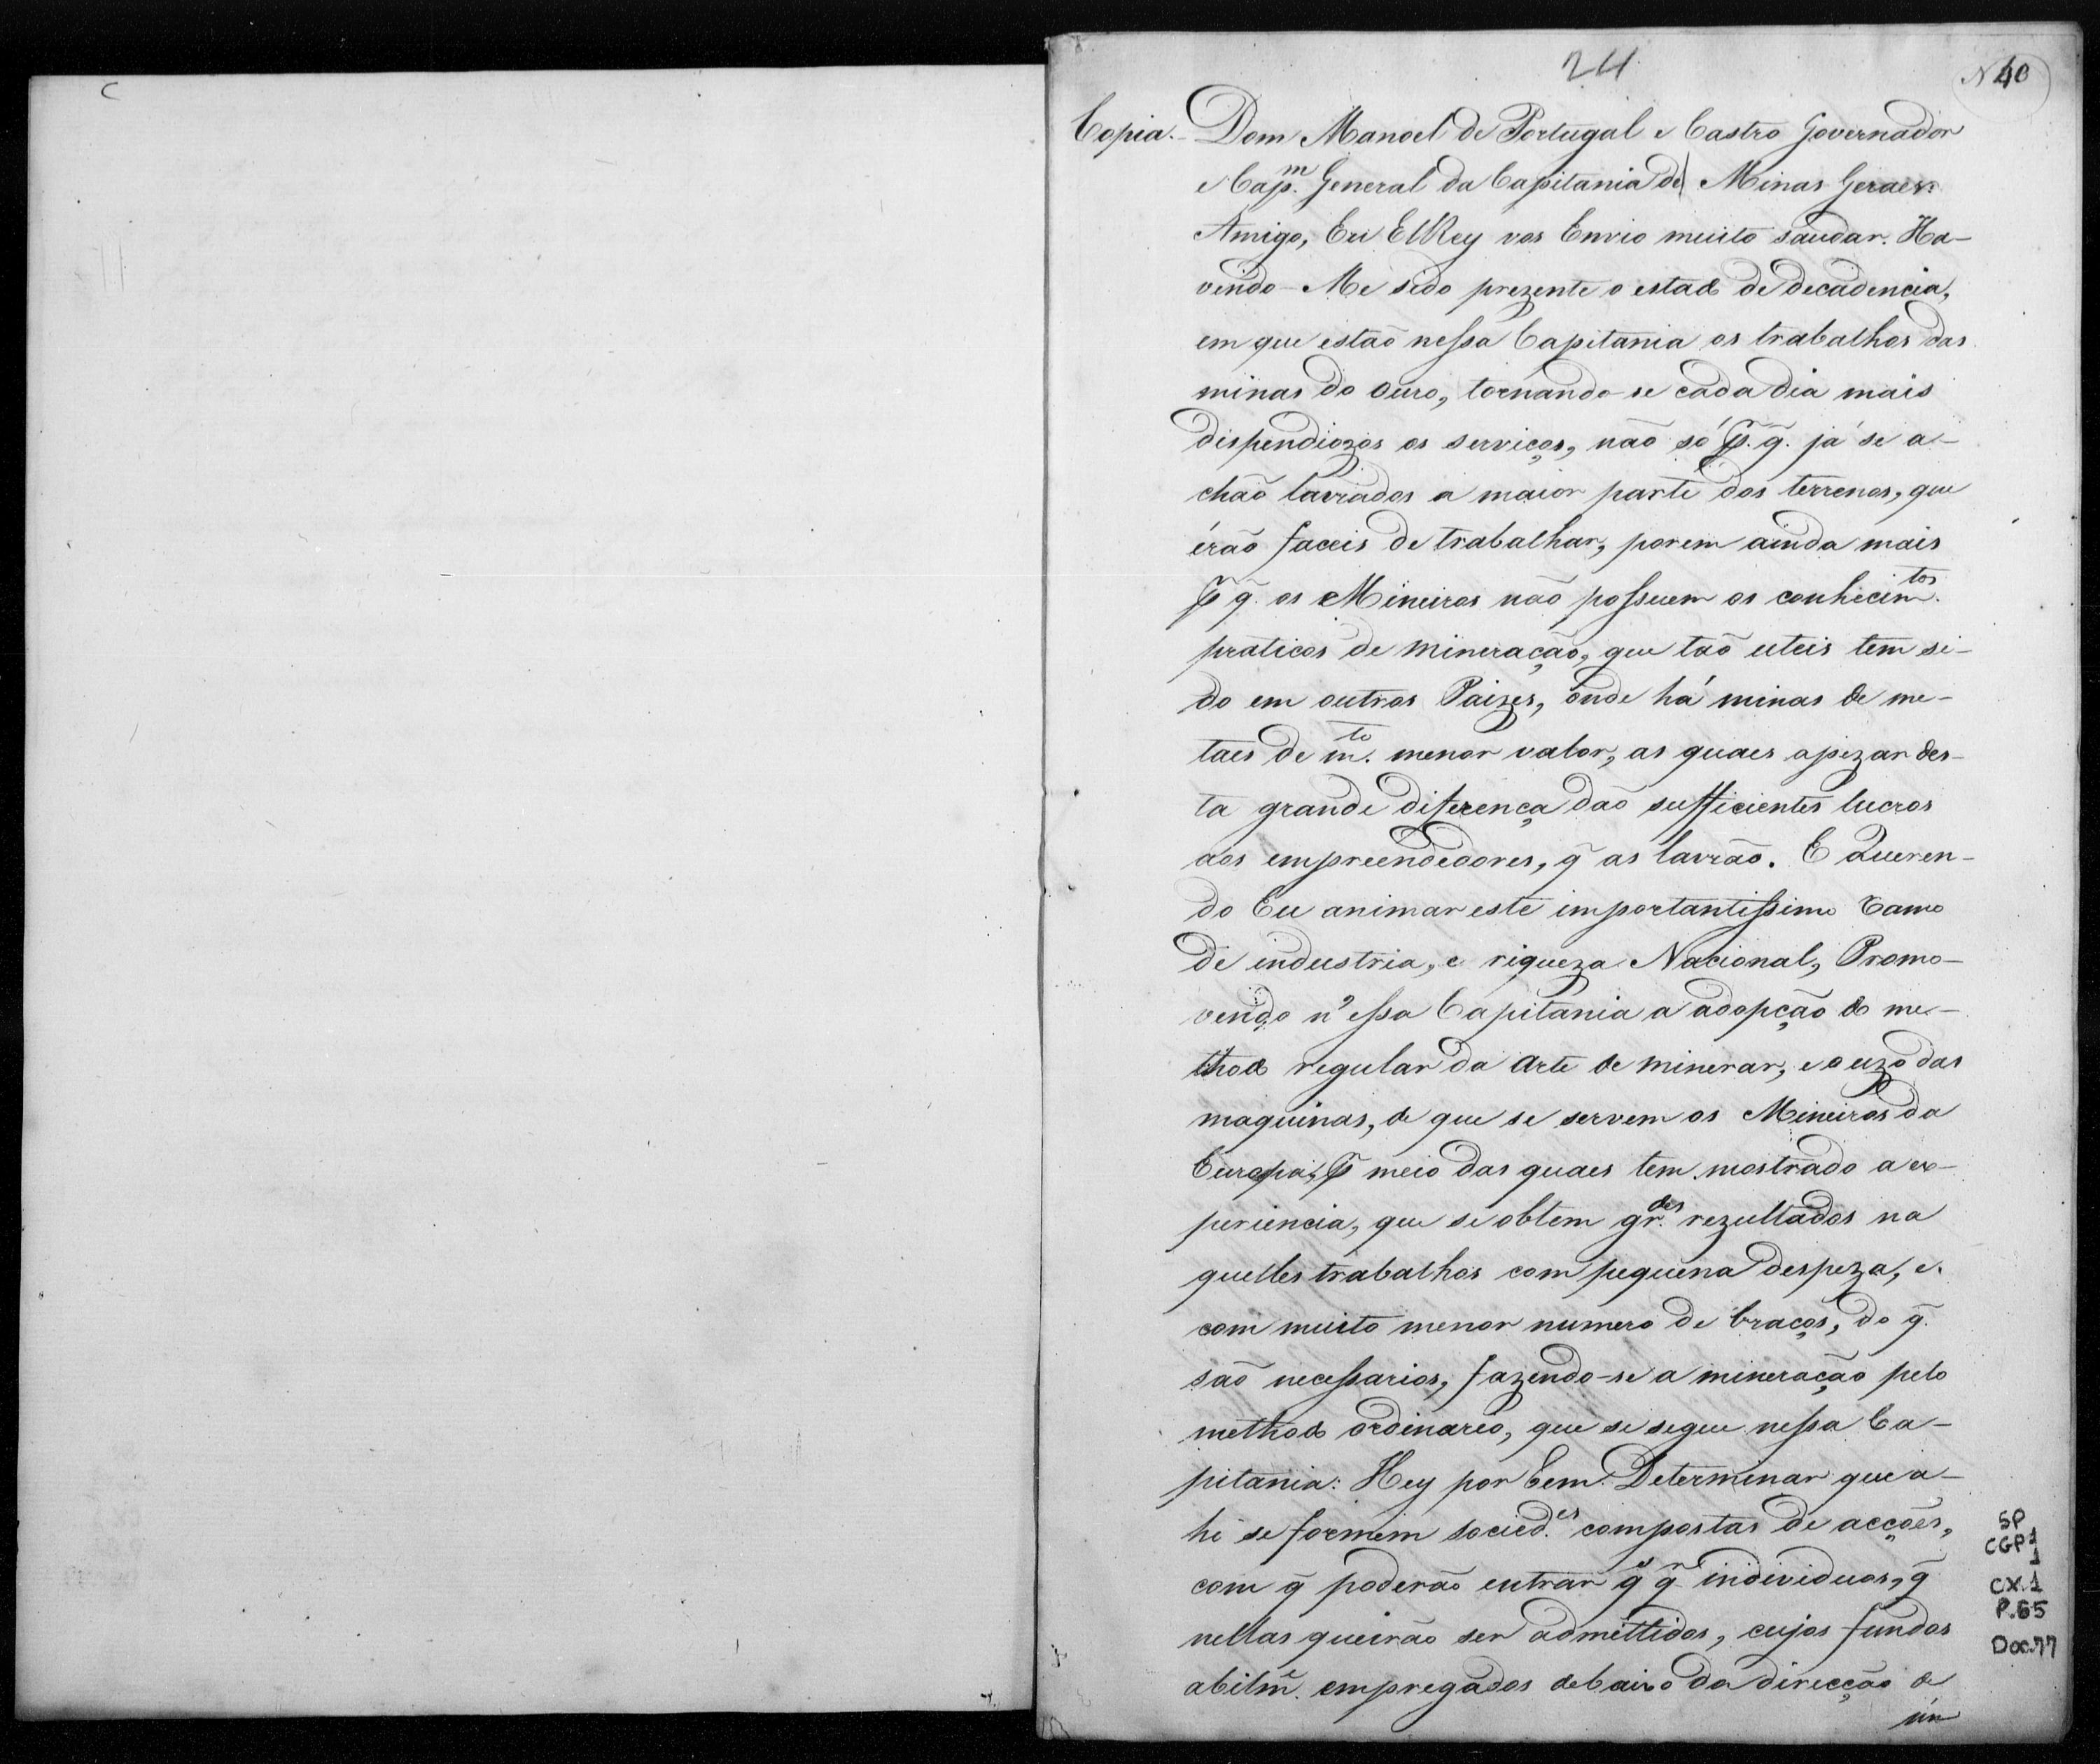 24
N 40
Copia. Dom Manoel de Portugal e Castro Governador
e Cap.m General da Capitania de Minas Geraes.
Amigo, Eu ElRey vos Envio muito saudar. Ha-
vendo-Me sido prezente o estado de decadencia,
em que estaõ nessa Capitania os trabalhos das
minas do Ouro, tornando-se cada dia mais
dispendiozos os serviços, naõ só p. q̃. já se a-
chaõ lavrados a maior parte dos terrenos, que
éraõ faceis de trabalhar, porem ainda mais
p q̃. os Mineiros naõ possuem os conhecim.tos
praticos de mineraçaõ, que taõ uteis tem si-
do em outros Paizes, onde há minas de me-
taes de m.to menor valor, as quaes apezar des-
ta grande diferença daõ sufficientes lucros
aos empreendedores, q̃ as lavraõ. E Queren-
do Eu animar este importantissimo ramo
de industria, e riqueza Nacional, Promo-
vendo n'essa Capitania a adopçaõ do me-
thodo regular da arte de minerar, e o uzo das
maquinas, de que se servem os Mineiros da
Europa, p meio das quaes tem mostrado a ex-
periencia, que se obtem gr.des rezultados na
quelles trabalhos com pequena despeza, e
com muito menor numero de braços, do q̃.
saõ necessarios, fazendo-se a mineraçaõ pelo
methodo ordinario, que se segue nessa Ca-
pitania: Hey por bem Determinar que a-
hi se formem socied.es compostas de acçoẽs,
com q̃ poderaõ entrar q̃ q̃ individuos, q̃
nellas queiraõ ser admittidos, cujos fundos
abilm.e empregados debaixo da direcçaõ de
um
SP
CGP 1
1
CX. 1
P. 65
Doc. 77